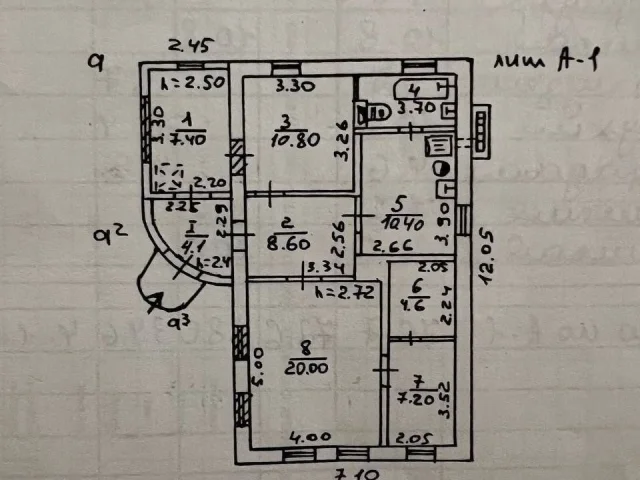 2.45
а
лит А-1
h=2.50
3.30
4
3.70
3.30
1
7.40
3
10.80
3.26
2.20
2.26
5
10.40
3.90
а²
I
4.1
2.29
2
8.60
2.56
2.66
12.05
h=2.4
3.34
2.05
h=2.72
6
4.6
2.24
а³
8
20.00
5.00
7
7.20
3.52
4.00
2.05
7.10